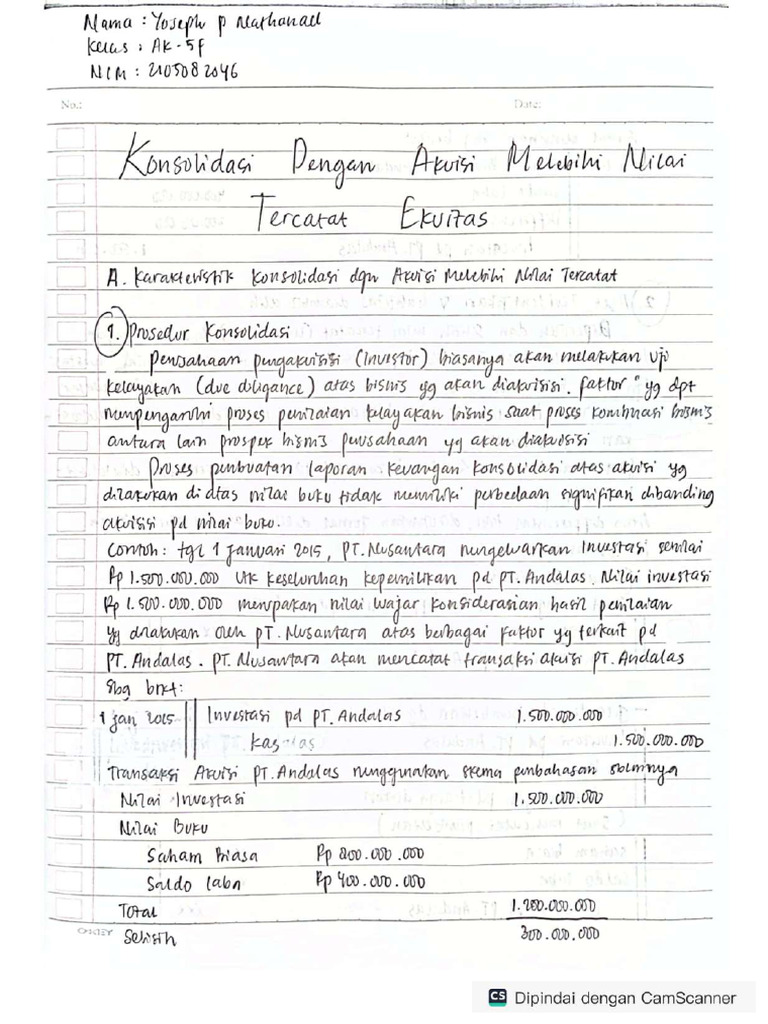 Nama : Yoseph P Nathanael
Kelas : AK-5F
NIM : 2105082046
No.:
Date:
Konsolidasi Dengan Akuisi Melebihi Nilai
Tercatat Ekuitas
A. Karakteristik Konsolidasi dgn Akuisi Melebihi Nilai Tercatat
1. Prosedur Konsolidasi
Perusahaan pengakuisisi (Investor) biasanya akan melakukan uji
kelayakan (due diligance) atas bisnis yg akan diakuisisi. faktor" yg dpt
mempengaruhi proses penilaian kelayakan bisnis saat proses kombinasi bisnis
antara lain prospek bisnis perusahaan yg akan diakuisisi
Proses pembuatan laporan keuangan konsolidasi atas akuisi yg
dilakukan di atas nilai buku tidak memiliki perbedaan signifikan dibanding
akuisisi pd nilai buku.
Contoh: tgl 1 Januari 2015, PT. Nusantara mengeluarkan Investasi senilai
Rp 1.500.000.000 utk keseluruhan kepemilikan pd PT. Andalas. Nilai investasi
Rp 1.500.000.000 merupakan nilai wajar konsiderasian hasil penilaian
yg dilakukan oleh PT. Nusantara atas berbagai faktor yg terkait pd
PT. Andalas. PT. Nusantara akan mencatat transaksi akuisi PT. Andalas
sbg brkt:
1 Jan 2015 Investasi pd PT. Andalas 1.500.000.000
Kas 1.500.000.000
Transaksi Akuisi PT. Andalas menggunakan skema pembahasan sblmnya
Nilai Investasi 1.500.000.000
Nilai Buku
Saham Biasa Rp 800.000.000
Saldo laba Rp 400.000.000
Total 1.200.000.000
Selisih 300.000.000
CS Dipindai dengan CamScanner